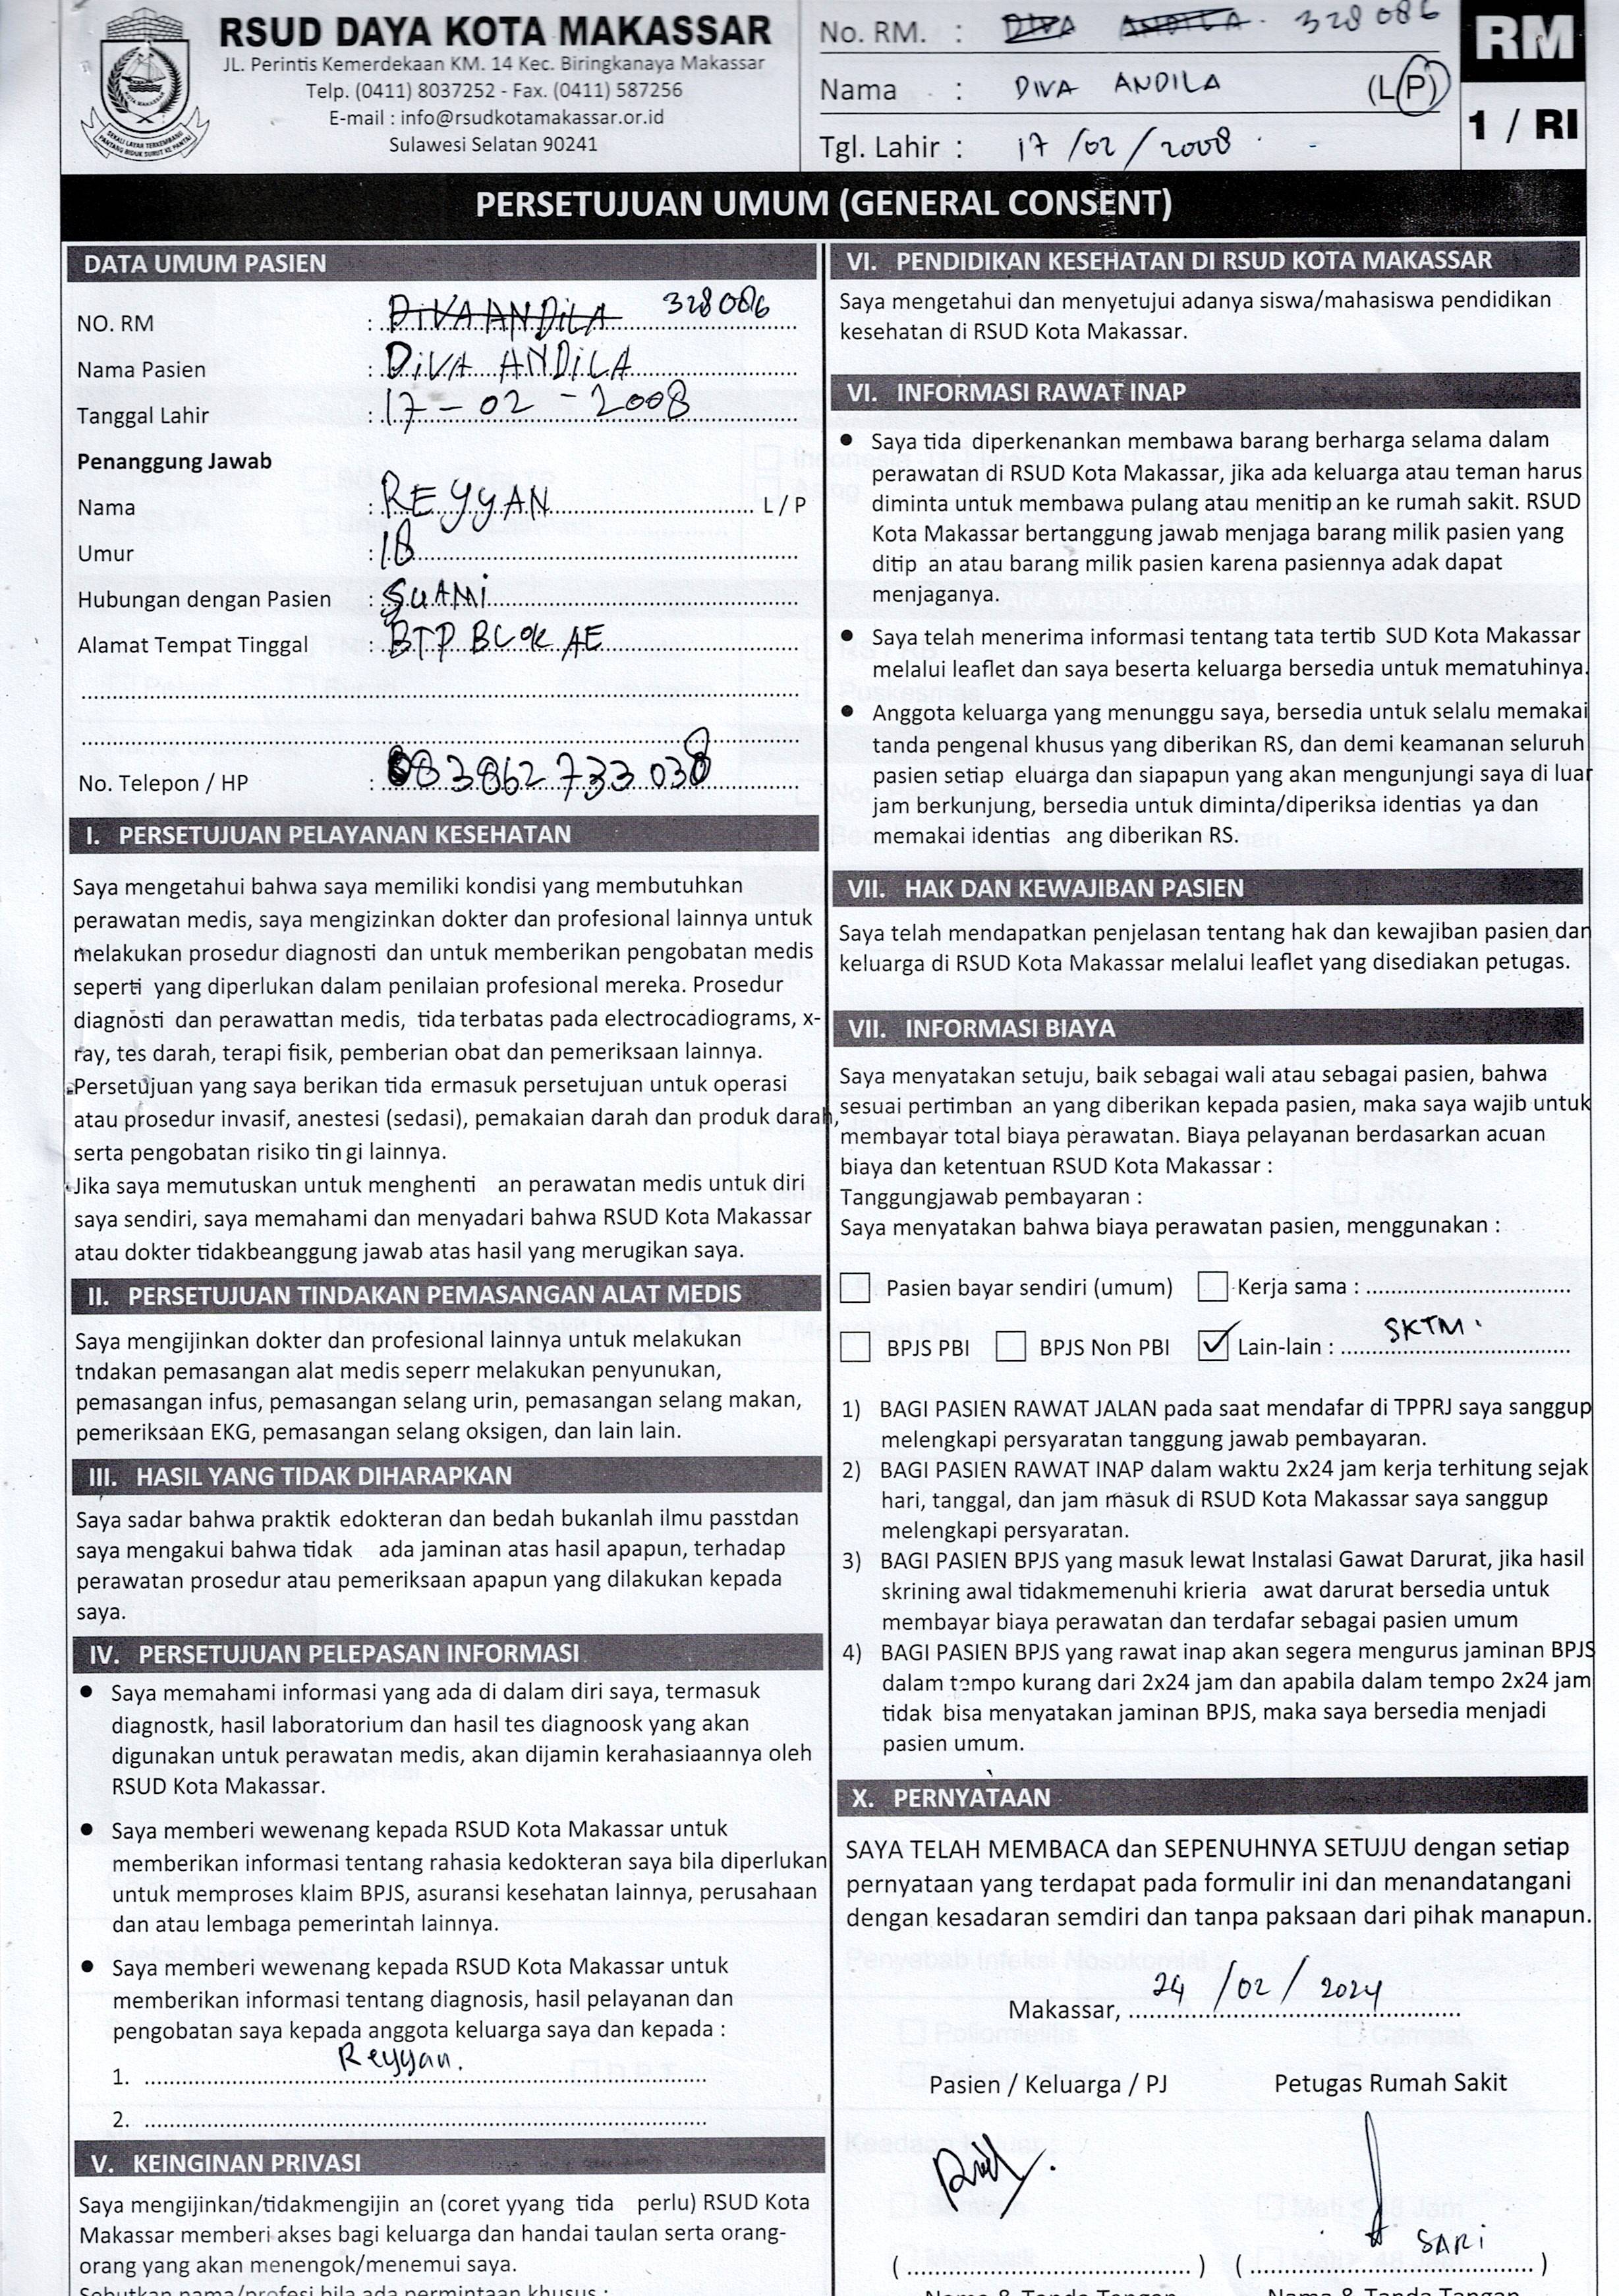 RSUD DAYA KOTA MAKASSAR
JL. Perintis Kemerdekaan KM. 14 Kec. Biringkanaya Makassar
Telp. (0411) 8037252 - Fax. (0411) 587256
E-mail : info@rsudkotamakassar.or.id
Sulawesi Selatan 90241
No. RM. : DIVA ANDILA. 328086
Nama : DIVA ANDILA (L/P)
Tgl. Lahir : 17/02/2008
RM
1 / RI
PERSETUJUAN UMUM (GENERAL CONSENT)
DATA UMUM PASIEN
NO. RM : DIVA ANDILA 328086
Nama Pasien : DIVA ANDILA
Tanggal Lahir : 17 - 02 - 2008
Penanggung Jawab
Nama : REYYAN L / P
Umur : 18
Hubungan dengan Pasien : SUAMI
Alamat Tempat Tinggal : BTP BLOK AE
No. Telepon / HP : 083862733038
I. PERSETUJUAN PELAYANAN KESEHATAN
Saya mengetahui bahwa saya memiliki kondisi yang membutuhkan
perawatan medis, saya mengizinkan dokter dan profesional lainnya untuk
melakukan prosedur diagnosti dan untuk memberikan pengobatan medis
seperti yang diperlukan dalam penilaian profesional mereka. Prosedur
diagnosti dan perawattan medis, tida terbatas pada electrocadiograms, x-
ray, tes darah, terapi fisik, pemberian obat dan pemeriksaan lainnya.
Persetujuan yang saya berikan tida ermasuk persetujuan untuk operasi
atau prosedur invasif, anestesi (sedasi), pemakaian darah dan produk darah,
serta pengobatan risiko tin gi lainnya.
Jika saya memutuskan untuk menghenti an perawatan medis untuk diri
saya sendiri, saya memahami dan menyadari bahwa RSUD Kota Makassar
atau dokter tidakbeanggung jawab atas hasil yang merugikan saya.
II. PERSETUJUAN TINDAKAN PEMASANGAN ALAT MEDIS
Saya mengijinkan dokter dan profesional lainnya untuk melakukan
tndakan pemasangan alat medis seperr melakukan penyunukan,
pemasangan infus, pemasangan selang urin, pemasangan selang makan,
pemeriksaan EKG, pemasangan selang oksigen, dan lain lain.
III. HASIL YANG TIDAK DIHARAPKAN
Saya sadar bahwa praktik edokteran dan bedah bukanlah ilmu passtdan
saya mengakui bahwa tidak ada jaminan atas hasil apapun, terhadap
perawatan prosedur atau pemeriksaan apapun yang dilakukan kepada
saya.
IV. PERSETUJUAN PELEPASAN INFORMASI
● Saya memahami informasi yang ada di dalam diri saya, termasuk
diagnostk, hasil laboratorium dan hasil tes diagnoosk yang akan
digunakan untuk perawatan medis, akan dijamin kerahasiaannya oleh
RSUD Kota Makassar.
● Saya memberi wewenang kepada RSUD Kota Makassar untuk
memberikan informasi tentang rahasia kedokteran saya bila diperlukan
untuk memproses klaim BPJS, asuransi kesehatan lainnya, perusahaan
dan atau lembaga pemerintah lainnya.
● Saya memberi wewenang kepada RSUD Kota Makassar untuk
memberikan informasi tentang diagnosis, hasil pelayanan dan
pengobatan saya kepada anggota keluarga saya dan kepada :
1. Reyyan.
2.
V. KEINGINAN PRIVASI
Saya mengijinkan/tidakmengijin an (coret yyang tida perlu) RSUD Kota
Makassar memberi akses bagi keluarga dan handai taulan serta orang-
orang yang akan menengok/menemui saya.
Sebutkan nama/profesi bila ada permintaan khusus :
VI. PENDIDIKAN KESEHATAN DI RSUD KOTA MAKASSAR
Saya mengetahui dan menyetujui adanya siswa/mahasiswa pendidikan
kesehatan di RSUD Kota Makassar.
VI. INFORMASI RAWAT INAP
● Saya tida diperkenankan membawa barang berharga selama dalam
perawatan di RSUD Kota Makassar, jika ada keluarga atau teman harus
diminta untuk membawa pulang atau menitip an ke rumah sakit. RSUD
Kota Makassar bertanggung jawab menjaga barang milik pasien yang
ditip an atau barang milik pasien karena pasiennya adak dapat
menjaganya.
● Saya telah menerima informasi tentang tata tertib SUD Kota Makassar
melalui leaflet dan saya beserta keluarga bersedia untuk mematuhinya.
● Anggota keluarga yang menunggu saya, bersedia untuk selalu memakai
tanda pengenal khusus yang diberikan RS, dan demi keamanan seluruh
pasien setiap eluarga dan siapapun yang akan mengunjungi saya di luar
jam berkunjung, bersedia untuk diminta/diperiksa identias ya dan
memakai identias ang diberikan RS.
VII. HAK DAN KEWAJIBAN PASIEN
Saya telah mendapatkan penjelasan tentang hak dan kewajiban pasien dan
keluarga di RSUD Kota Makassar melalui leaflet yang disediakan petugas.
VII. INFORMASI BIAYA
Saya menyatakan setuju, baik sebagai wali atau sebagai pasien, bahwa
sesuai pertimban an yang diberikan kepada pasien, maka saya wajib untuk
membayar total biaya perawatan. Biaya pelayanan berdasarkan acuan
biaya dan ketentuan RSUD Kota Makassar :
Tanggungjawab pembayaran :
Saya menyatakan bahwa biaya perawatan pasien, menggunakan :
Pasien bayar sendiri (umum) Kerja sama :
BPJS PBI BPJS Non PBI ✓ Lain-lain : SKTM.
1) BAGI PASIEN RAWAT JALAN pada saat mendafar di TPPRJ saya sanggup
melengkapi persyaratan tanggung jawab pembayaran.
2) BAGI PASIEN RAWAT INAP dalam waktu 2x24 jam kerja terhitung sejak
hari, tanggal, dan jam masuk di RSUD Kota Makassar saya sanggup
melengkapi persyaratan.
3) BAGI PASIEN BPJS yang masuk lewat Instalasi Gawat Darurat, jika hasil
skrining awal tidakmemenuhi krieria awat darurat bersedia untuk
membayar biaya perawatan dan terdafar sebagai pasien umum
4) BAGI PASIEN BPJS yang rawat inap akan segera mengurus jaminan BPJS
dalam tempo kurang dari 2x24 jam dan apabila dalam tempo 2x24 jam
tidak bisa menyatakan jaminan BPJS, maka saya bersedia menjadi
pasien umum.
X. PERNYATAAN
SAYA TELAH MEMBACA dan SEPENUHNYA SETUJU dengan setiap
pernyataan yang terdapat pada formulir ini dan menandatangani
dengan kesadaran semdiri dan tanpa paksaan dari pihak manapun.
Makassar, 24/02/2024
Pasien / Keluarga / PJ Petugas Rumah Sakit
SARI
( ) ( )
Nama & Tanda Tangan Nama & Tanda Tangan